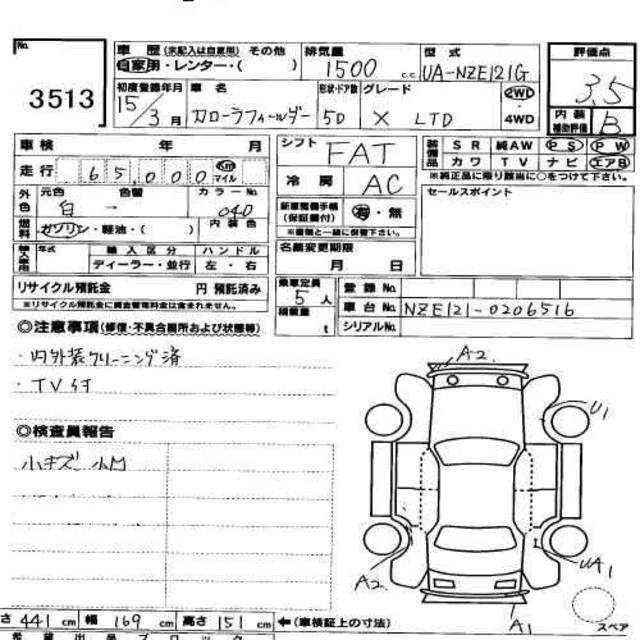 No.
3513
車歴 (未記入は自家用) その他
自家用・レンター・( )
排気量
1500 c.c.
型式
UA-NZE121G
評価点
3.5
初度登録年月
15/3月
車名
カローラフィールダー
形状・ドア数
5D
グレード
X LTD
2WD
・
4WD
内装
補助評価
B
車検 年 月
シフト
FAT
装備品
SR 純AW PS PW
カワ TV ナビ エアB
※純正品に限り該当に○をつけて下さい。
走行 65,000 Km
マイル
冷房
AC
セールスポイント
外色
元色 色替
白 →
カラーNo.
040
新車整備手帳
(保証書付)
有・無
※書類と一緒に保管下さい。
燃料
ガソリン・軽油・( )
内装色
輸入車用
年式
輸入区分
ハンドル
ディーラー・並行
左・右
名義変更期限
月 日
リサイクル預託金 円 預託済み
※リサイクル預託金に資金管理料金は含まれません。
乗車定員
5人
積載量
t
登録No.
車台No.
NZE121-0206516
シリアルNo.
◎注意事項(修復・不具合箇所および状態等)
・内外装クリーニング済
・TV付
◎検査員報告
小キズ 小凹
A2
U1
A2
UA1
A1
スペア
さ 441 cm 幅 169 cm 高さ 151 cm ←(車検証上の寸法)
希望出品ブロック